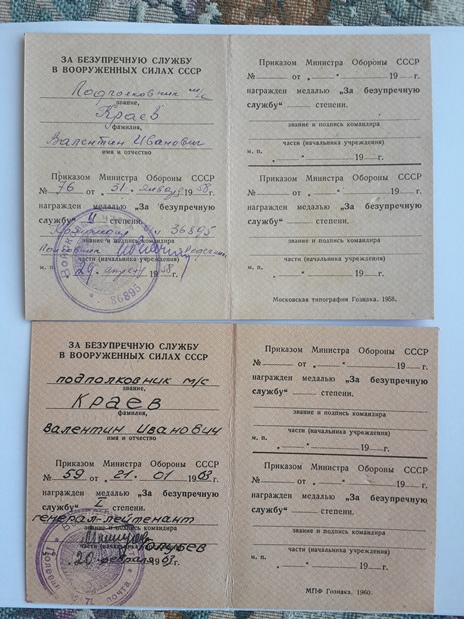 ЗА БЕЗУПРЕЧНУЮ СЛУЖБУ
В ВООРУЖЕННЫХ СИЛАХ СССР
Подполковник м/с
звание,
Краев
фамилия,
Валентин Иванович
имя и отчество
Приказом Министра Обороны СССР
№ 76 от „31" января 1958 г.
награжден медалью „За безупречную
службу" II степени.
36895
звание и подпись командира
Полковник
части (начальника учреждения)
м. п. „29" апреля 1958 г.
36895
Приказом Министра Обороны СССР
№ от „ " 19 г.
награжден медалью „За безупречную
службу" степени.
звание и подпись командира
части (начальника учреждения)
м. п. „ " 19 г.
Приказом Министра Обороны СССР
№ от „ " 19 г.
награжден медалью „За безупречную
службу" степени.
звание и подпись командира
части (начальника учреждения)
м. п. „ " 19 г.
Московская типография Гознака. 1958.
ЗА БЕЗУПРЕЧНУЮ СЛУЖБУ
В ВООРУЖЕННЫХ СИЛАХ СССР
подполковник м/с
звание,
Краев
фамилия,
Валентин Иванович
имя и отчество
Приказом Министра Обороны СССР
№ 59 от „21" 01 19 г.
награжден медалью „За безупречную
службу" I степени.
генерал-лейтенант
звание и подпись командира
части (начальника
Голубев
20 февраля
почта
Приказом Министра Обороны СССР
№ от „ " 19 г.
награжден медалью „За безупречную
службу" степени.
звание и подпись командира
части (начальника учреждения)
м. п. „ " 19 г.
Приказом Министра Обороны СССР
№ от „ " 19 г.
награжден медалью „За безупречную
службу" степени.
звание и подпись командира
части (начальника учреждения)
м. п. „ " 19 г.
МПФ Гознака. 1960.